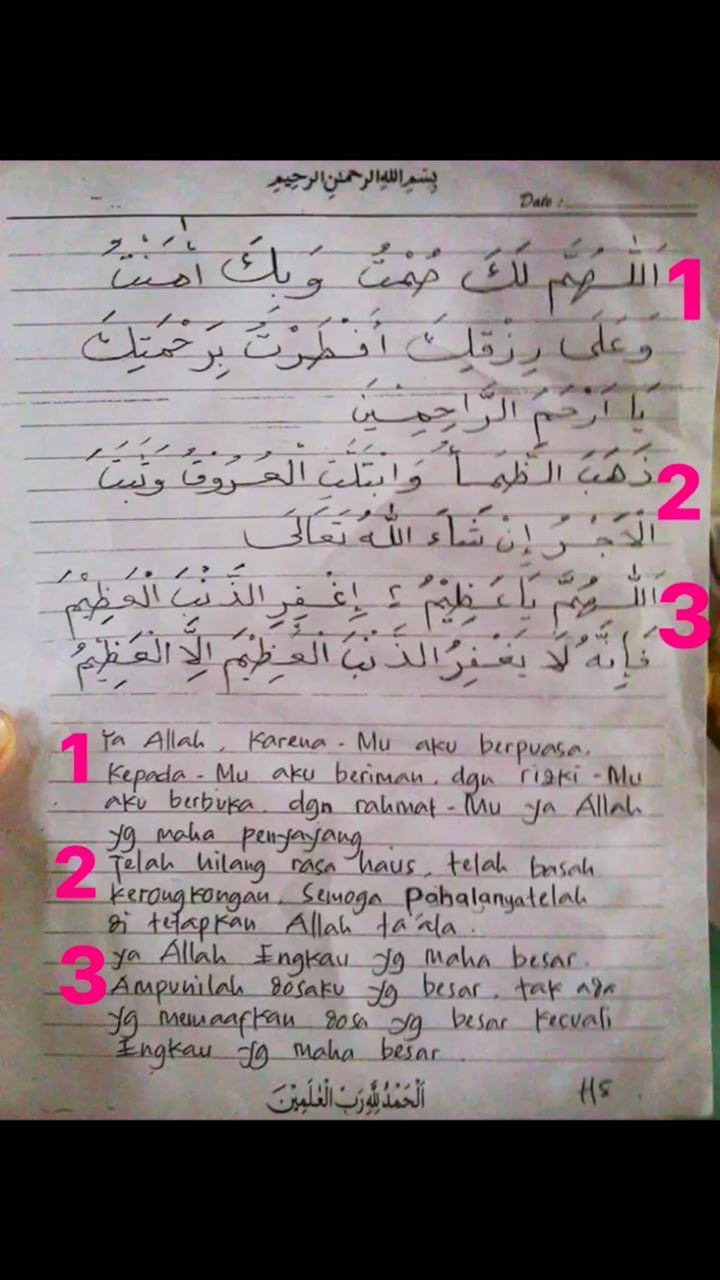 بِسْمِ اللهِ الرَّحْمٰنِ الرَّحِيْمِ
Date :
اَللّٰهُمَّ لَكَ صُمْتُ وَبِكَ اٰمَنْتُ 1
وَعَلَى رِزْقِكَ أَفْطَرْتُ بِرَحْمَتِكَ
يَا أَرْحَمَ الرَّاحِمِيْنَ
ذَهَبَ الظَّمَأُ وَابْتَلَّتِ الْعُرُوْقُ وَثَبَتَ 2
الْاَجْرُ إِنْ شَاءَ اللهُ تَعَالَى
اَللّٰهُمَّ يَا عَظِيْمُ ؛ اِغْفِرِ الذَّنْبَ الْعَظِيْمَ 3
فَإِنَّهُ لَا يَغْفِرُ الذَّنْبَ الْعَظِيْمَ اِلَّا الْعَظِيْمُ
1 Ya Allah, Karena-Mu aku berpuasa.
Kepada-Mu aku beriman. dgn rizki-Mu
aku berbuka. dgn rahmat-Mu ya Allah
yg maha penyayang
2 Telah hilang rasa haus, telah basah
kerongkongan. Semoga Pahalanyatelah
di tetapkan Allah ta'ala.
3 ya Allah Engkau yg maha besar.
Ampunilah dosaku yg besar. tak ada
yg memaafkan dosa yg besar kecuali
Engkau yg maha besar.
اَلْحَمْدُ لِلّٰهِ رَبِّ الْعٰلَمِيْنَ